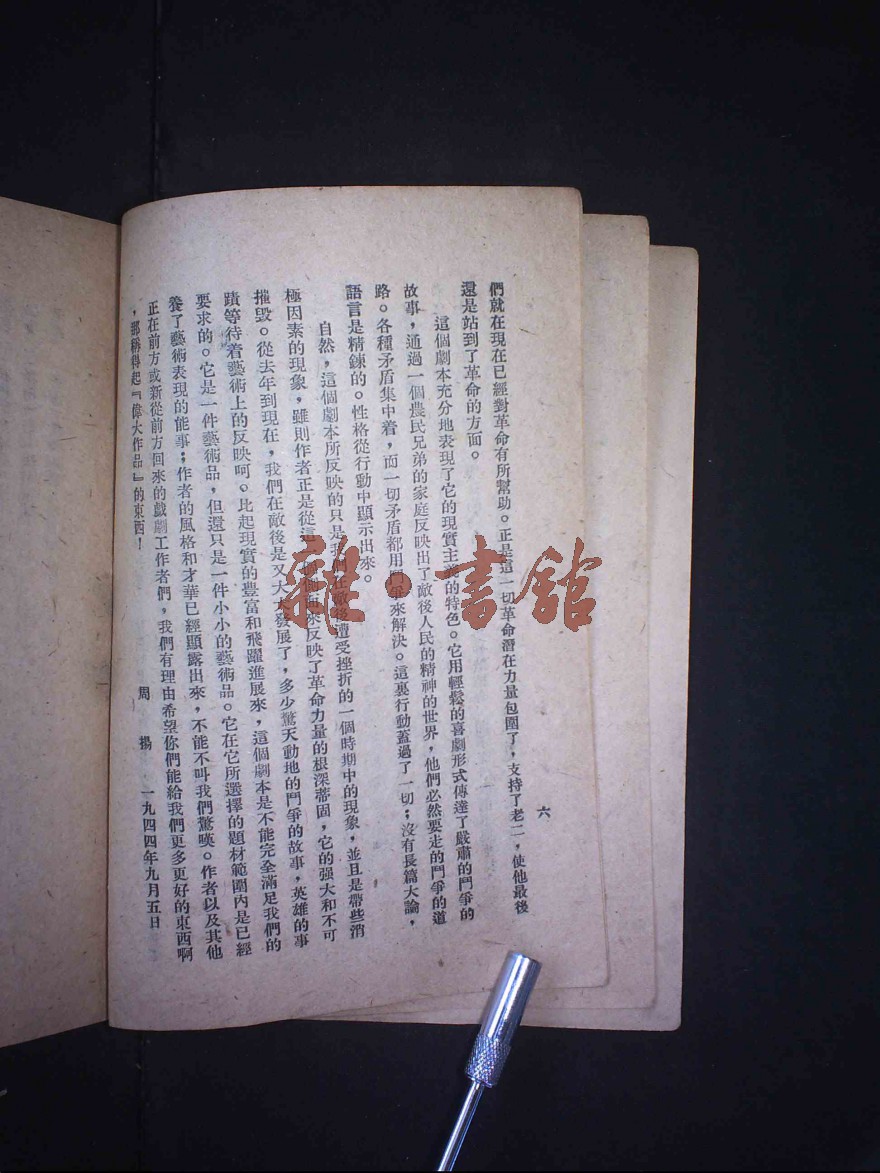 六
們就在現在已經對革命有所幫助。正是這一切革命潛在力量包圍了，支持了老二，使他最後
還是站到了革命的方面。
這個劇本充分地表現了它的現實主義的特色。它用輕鬆的喜劇形式傳達了嚴肅的鬥爭的
故事，通過一個農民兄弟的家庭反映出了敵後人民的精神的世界，他們必然要走的鬥爭的道
路。各種矛盾集中着，而一切矛盾都用鬥爭來解決。這裏行動蓋過了一切；沒有長篇大論，
語言是精鍊的。性格從行動中顯示出來。
自然，這個劇本所反映的只是我們在敵後遭受挫折的一個時期中的現象，並且是帶些消
極因素的現象，雖則作者正是從這 面來反映了革命力量的根深蒂固，它的强大和不可
摧毀。從去年到現在，我們在敵後是又大大發展了，多少驚天動地的鬥爭的故事，英雄的事
蹟等待着藝術上的反映呵。比起現實的豐富和飛躍進展來，這個劇本是不能完全滿足我們的
要求的。它是一件藝術品，但還只是一件小小的藝術品。它在它所選擇的題材範圍內是已經
養了藝術表現的能事；作者的風格和才華已經顯露出來，不能不叫我們驚嘆。作者以及其他
正在前方或新從前方回來的戲劇工作者們，我們有理由希望你們能給我們更多更好的東西啊
，那稱得起『偉大作品』的東西！
周揚 一九四四年九月五日
雜·書館